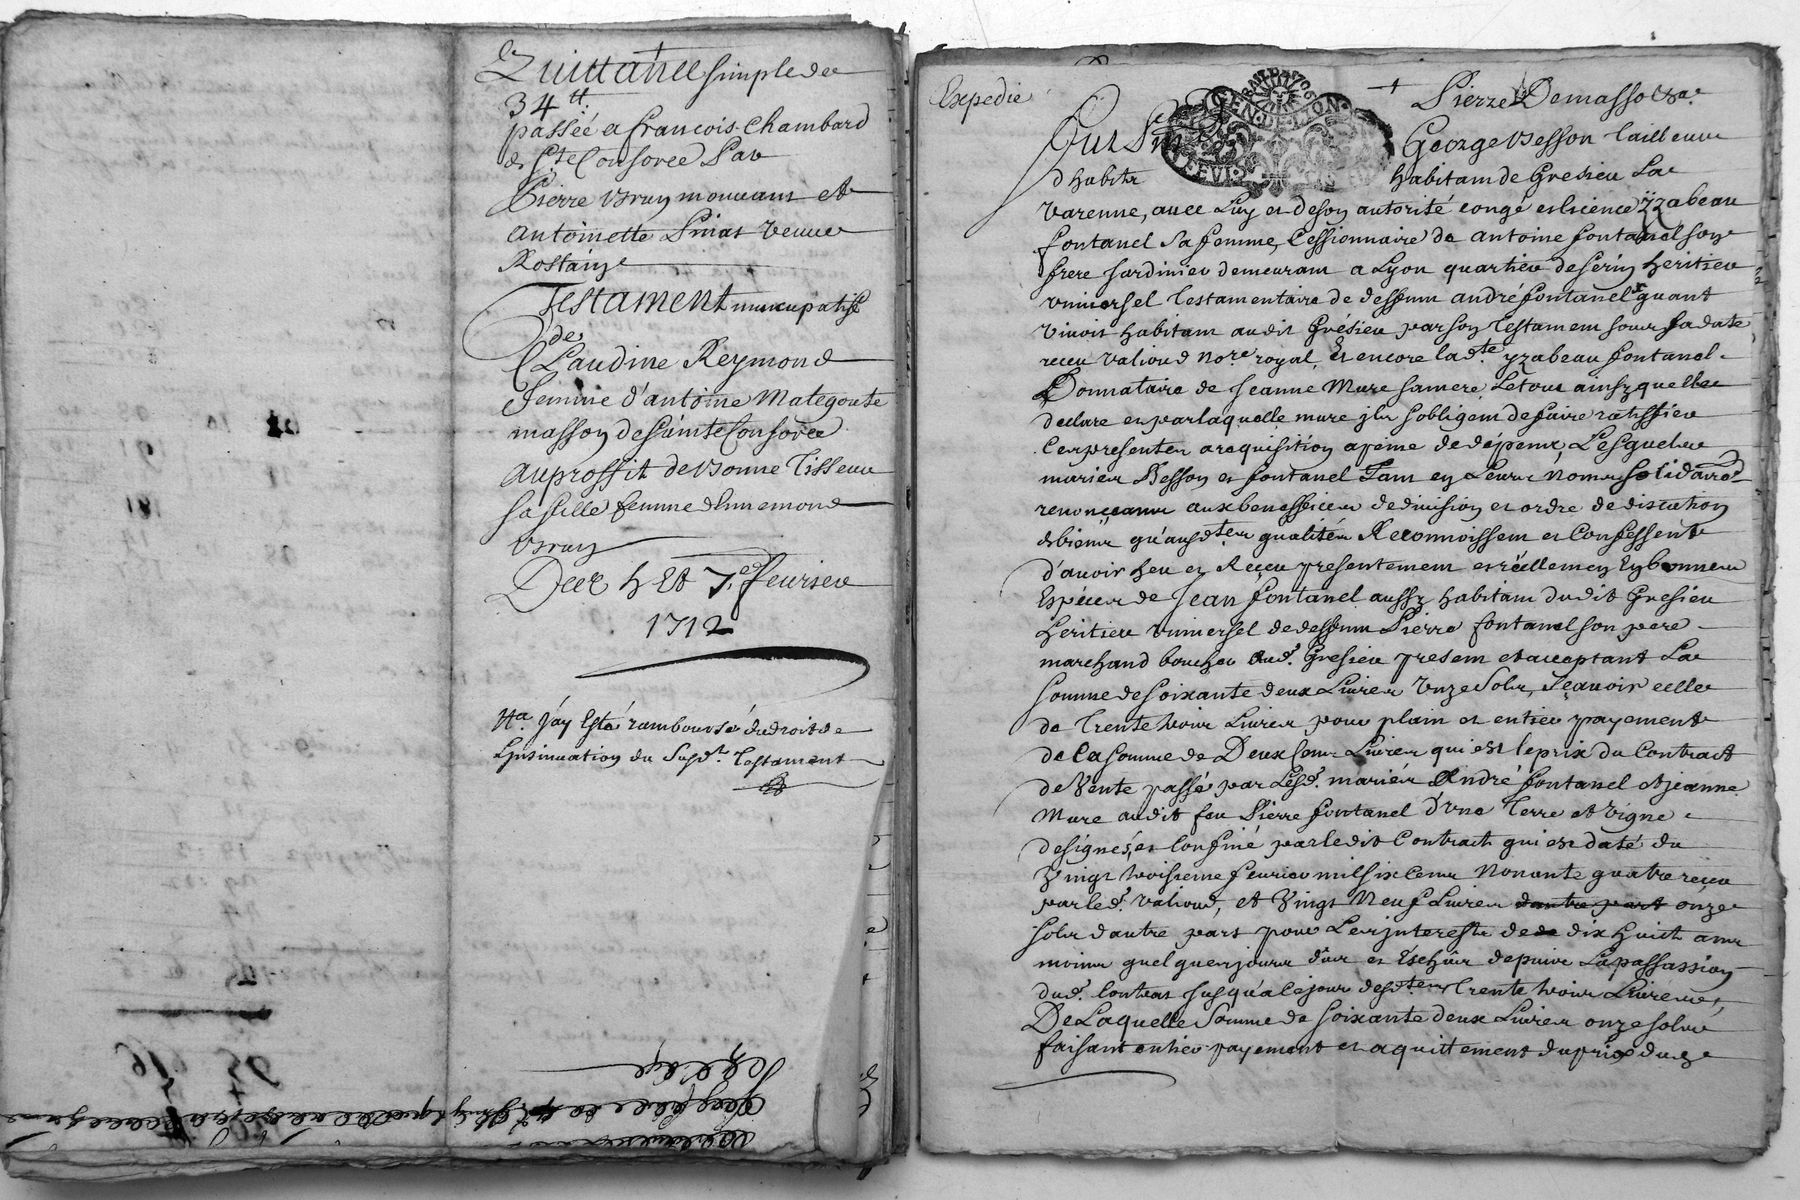 Quittance simple de
34 tt.
passée a francois Chambard
de Ste Consorce Par
Pierre Vray mouvant et
Antoinette Pinat veuve
Rostaing
Testament nuncupatif
de
Claudine Reymond
femme d'antoine Mategoute
masson de sainte Consorce
au proffit de bonne Tisseur
sa fille femme d'
Vray
Des 4 Et 7e feurier
1712
Na. j'ay Esté rambourse du droit de
Linsinuation du Susd. Testament
Expedié
GEN DE LION
Pierre Demasso
George Besson Tailleur
d habits habitant de Gresieu La
Varenne, avec Luy et de son autorité congé et licience yzabeau
fontanel sa femme, Cessionnaire de antoine fontanel son
frere Jardinier demeurant a Lyon quartier de serin heritier
vniversel Testamentaire de deffunt andré fontanel quant
vivoit habitant audit Grésieu par son Testament sous sa date
receu Valioud nore royal, Et encore lad.te yzabeau fontanel
Donnataire de Jeanne Mure sa mere Le tout ainsy quelle
declare et par laquelle mure ils sobligent de faire ratiffier
Ces presentes a requisition a peine de depens, Lesquels
mariés Besson et fontanel Tant en Leurs noms solidaires
renonceant aux beneffices de division et ordre de discution
de biens qu'ausd.tes qualités Reconnoissent et Confessent
d'avoir heu et Receu presentement et réellement En bonnes
Espéces de Jean fontanel aussy habitant dudit Gresieu
heritier vniversel de deffunt Pierre fontanel son pere
marchand boucher aud. Gresieu present et acceptant La
somme de soixante deux Livres Vnze Sols, Sçavoir celle
de Trente trois Livres pour plain et entier payement
de la somme de Deux Cens Livres qui est le prix du Contract
de Vente passé par Lesd. mariés André fontanel et jeanne
Mure audit feu Pierre fontanel d'vne Terre et vigne
designés, et Confiné par ledit Contract qui est daté du
Vingt troisieme feurier mil six Cens Nonante quatre receu
par led. Valioud, et Vingt Neuf Livres dautre part onze
sols dautre part pour Les jnterests de dix huict ans
moins quelques jours dûs et Eschûs depuis La passassion
dud. Contrat jusqu'a ce jour desd.tes Trente trois Livres,
De Laquelle Somme de soixante deux Livres onze sols
faisant entier payement et aquittement du prix dud.